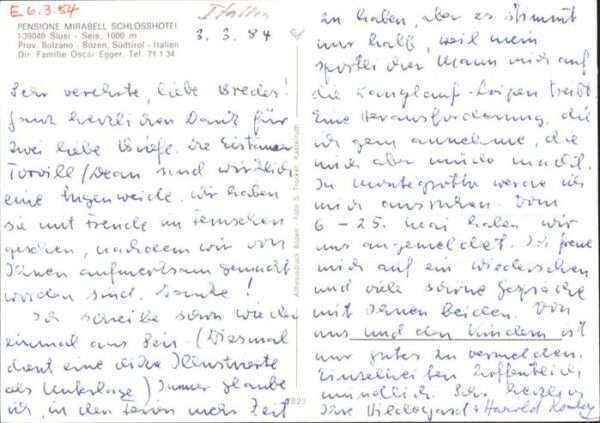 E 6.3.84
Italien
3. 3. 84
PENSIONE MIRABELL SCHLOSSHOTEL
I-39040 Siusi - Seis, 1000 m
Prov. Bolzano - Bozen, Südtirol - Italien
Dir. Familie Oscar Egger, Tel. 71 1 34
Sehr verehrte, liebe Bredes!
Ganz herzlichen Dank für
zwei liebe Briefe. Die Eistänzer
Torvill/Dean sind wirklich
eine Augenweide. Wir haben
sie mit Freude im Fernsehen
gesehen, nachdem wir von
Ihnen aufmerksam gemacht
worden sind. Danke!
Ich schreibe schon wieder
einmal aus Seis. (Diesmal
dient eine dicke Illustrierte
als Unterlage) Immer glaube
ich, in den Ferien mehr Zeit
zu haben, aber es stimmt
nur halb, weil mein
sportlicher Mann mich auf
die Langlauf-Loipen treibt.
Eine Herausforderung, die
ich gern annehme, die
mich aber müde macht.
In Montegrotto werde ich
mich ausruhen. Vom
6 - 25. Mai haben wir
uns angemeldet. Ich freue
mich auf ein Wiedersehen
und viele schöne Gespräche
mit Ihnen beiden. Von
uns und den Kindern ist
nur gutes zu vermelden.
Einzelheiten hoffentlich
mündlich. Sehr herzlich
Ihre Hildegard + Harold